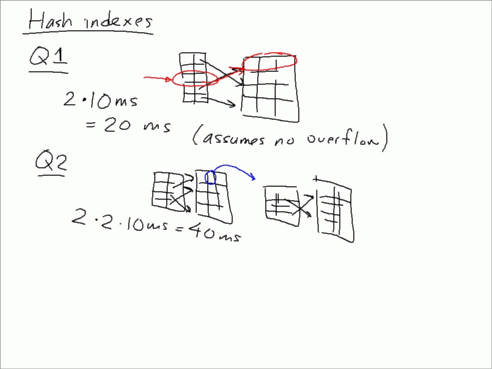 Hash indexes
Q1
2·10ms
= 20 ms (assumes no overflow)
Q2
2·2·10ms = 40ms